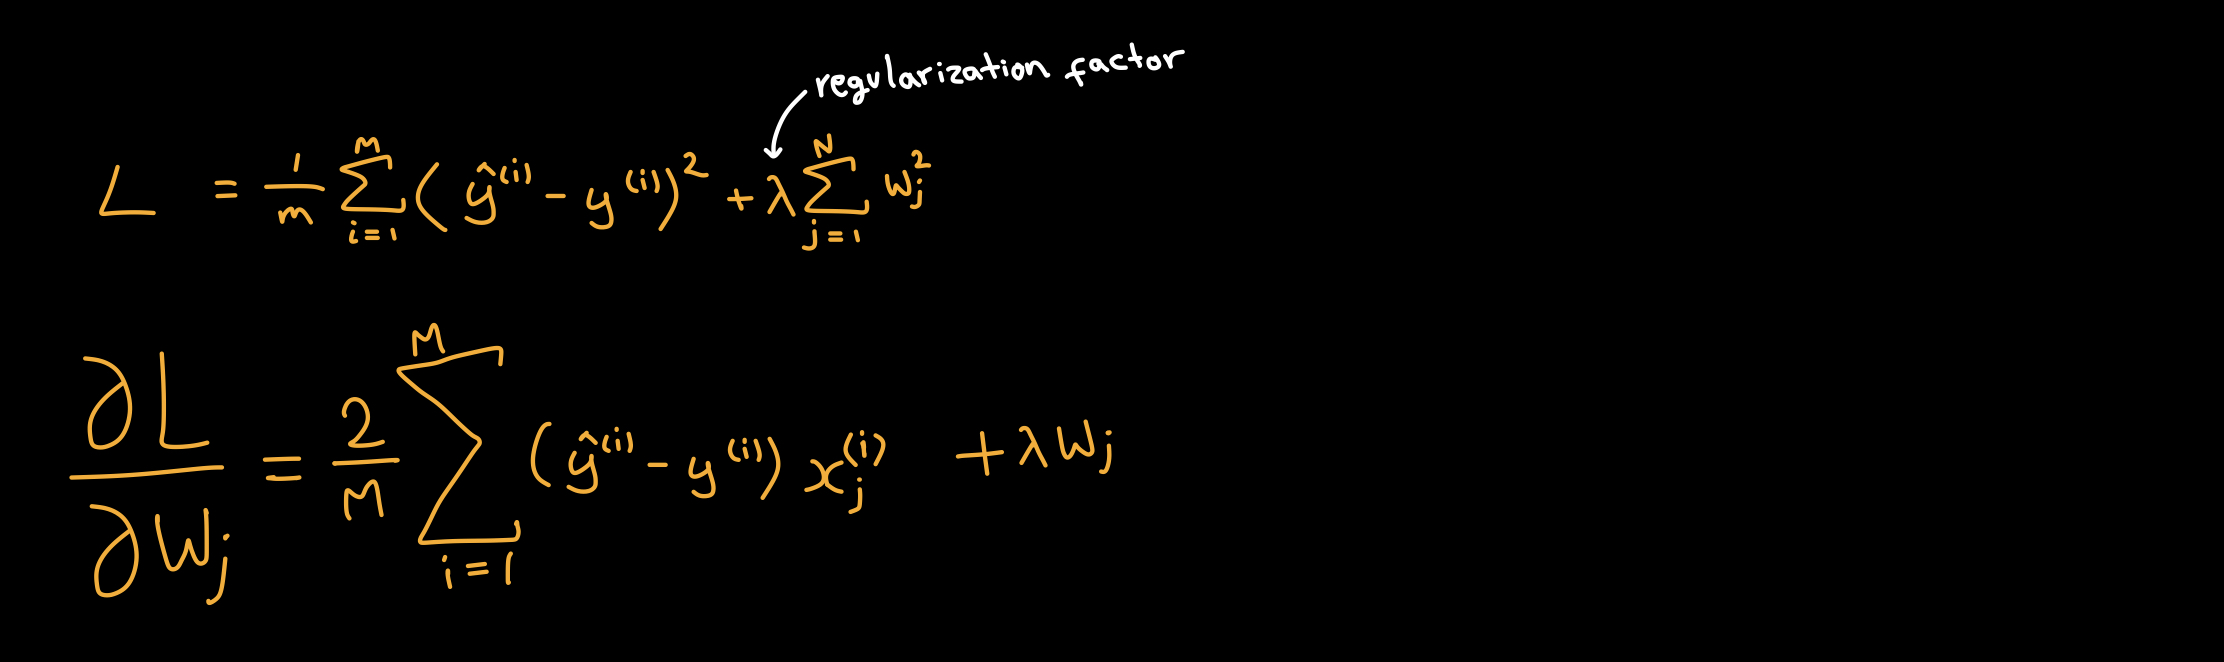 regularization factor
L = 1/m ∑_{i=1}^{M} (ŷ^{(i)} - y^{(i)})² + λ ∑_{j=1}^{N} w_j²
∂L/∂w_j = 2/M ∑_{i=1}^{M} (ŷ^{(i)} - y^{(i)}) x_j^{(i)} + λ w_j